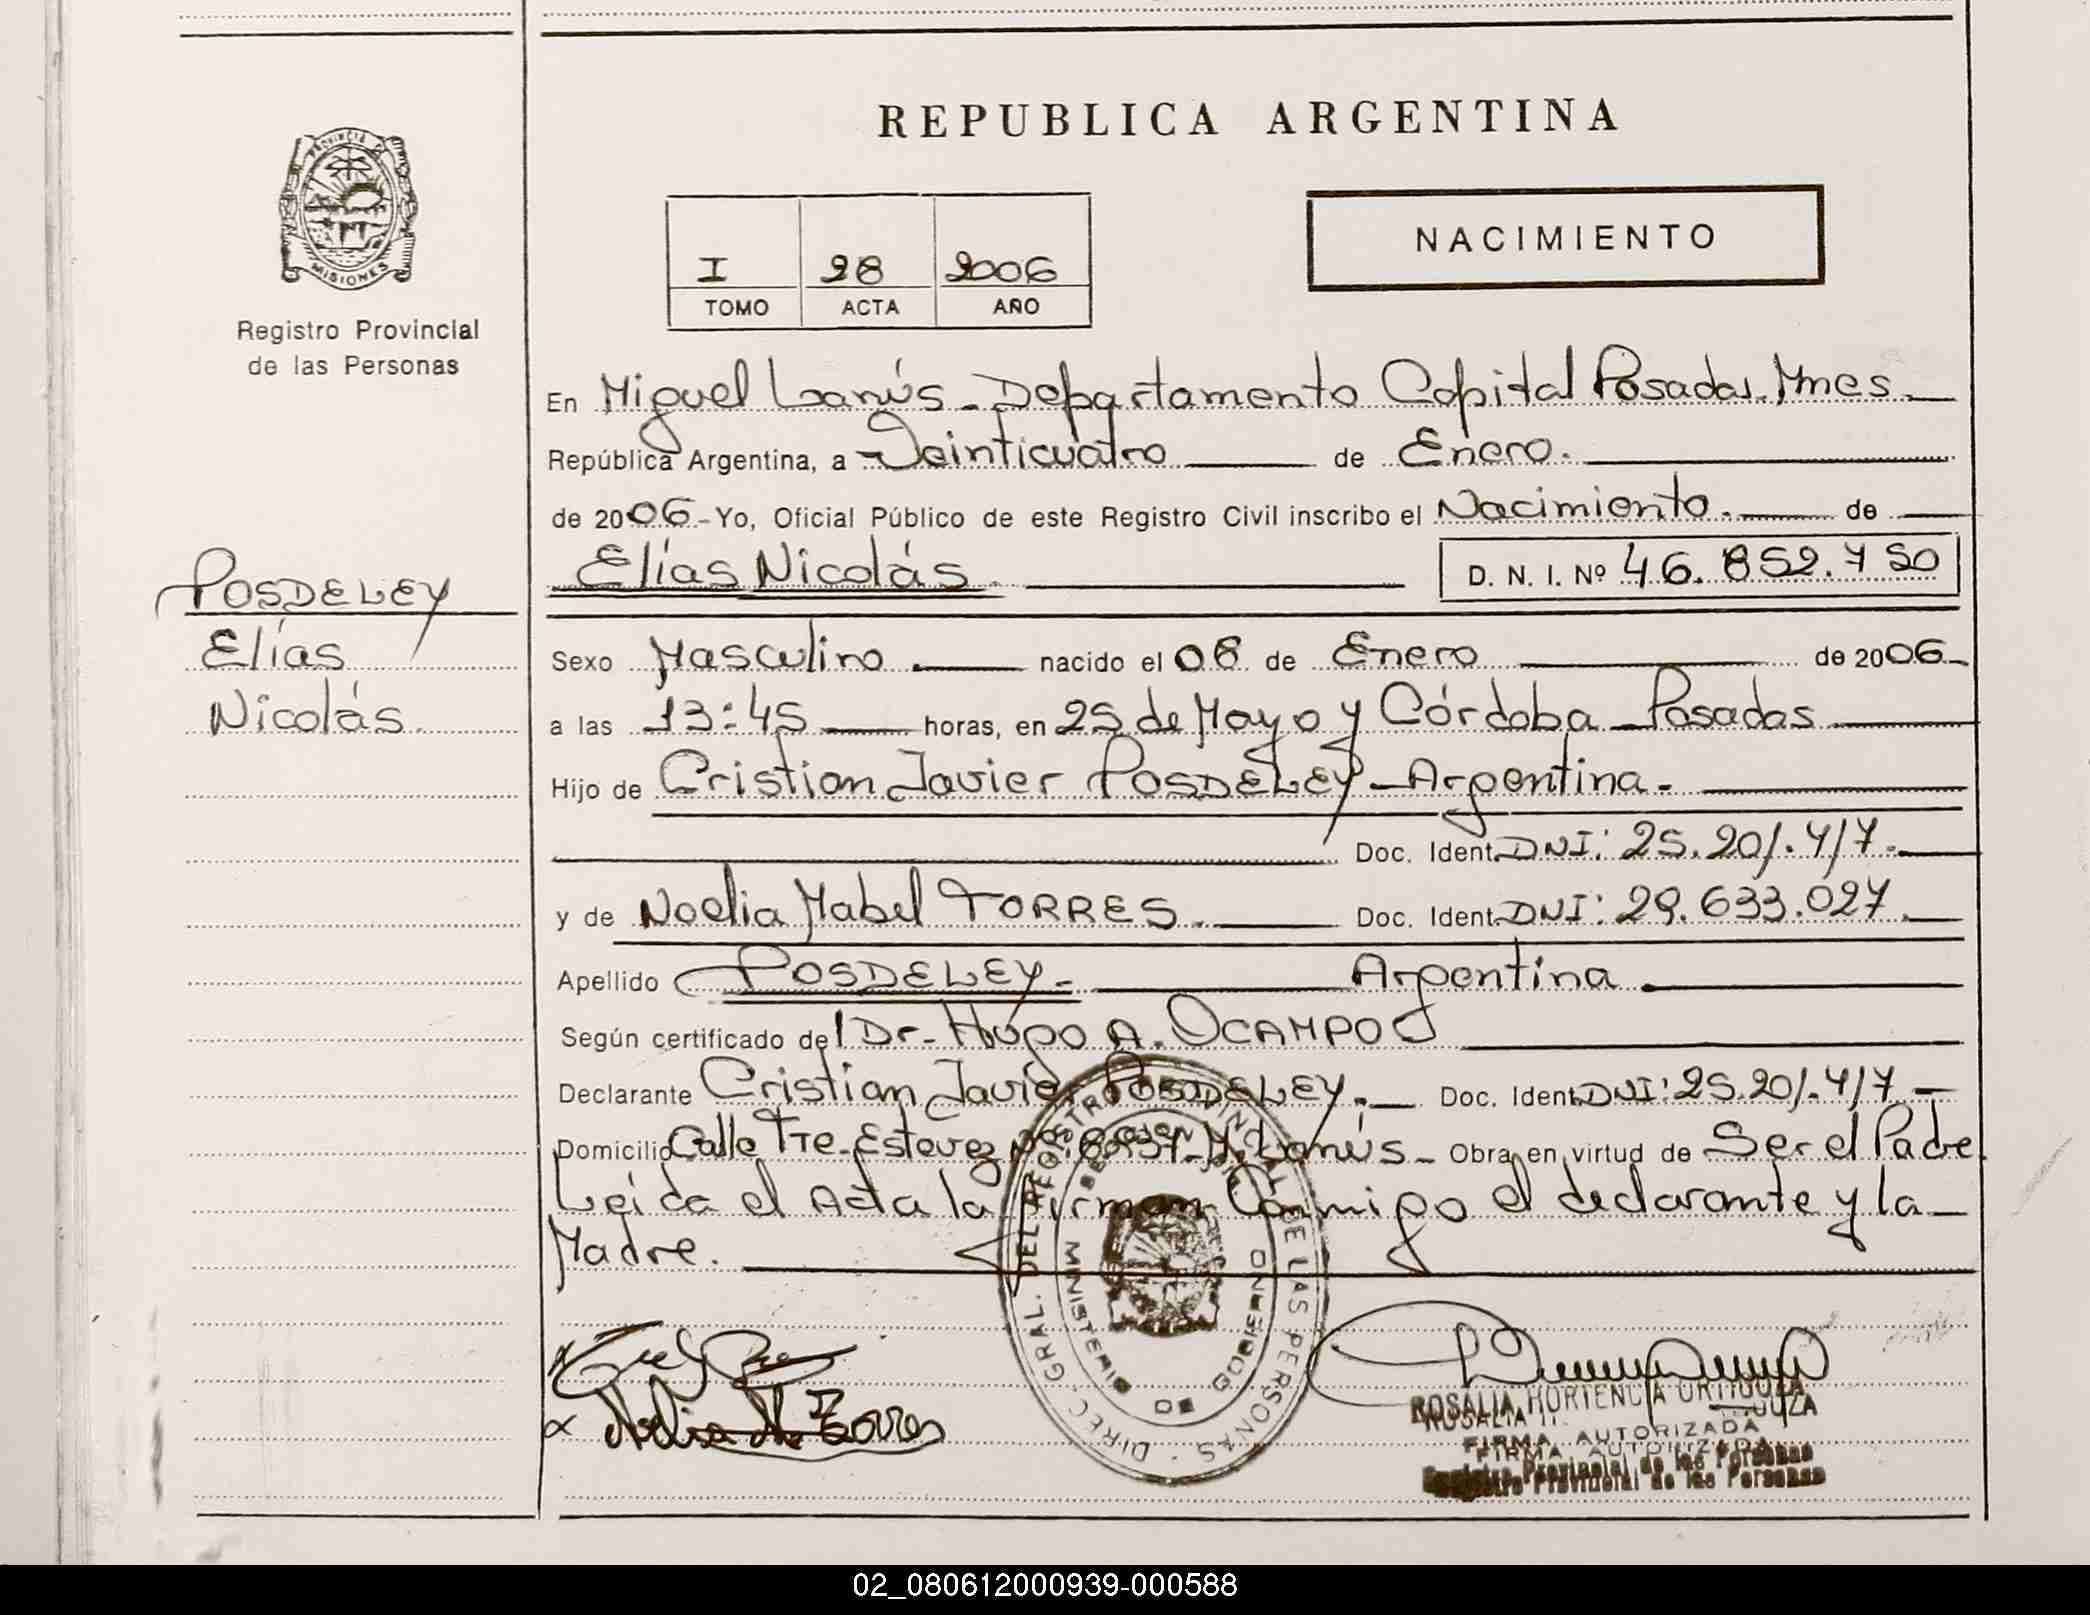 REPUBLICA ARGENTINA
PROVINCIA DE
MISIONES
Registro Provincial
de las Personas
NACIMIENTO
I 28 2006
TOMO ACTA AÑO
En Miguel Lanús - Departamento Capital Posadas. Mnes.
República Argentina, a Veinticuatro de Enero.
de 2006 - Yo, Oficial Público de este Registro Civil inscribo el Nacimiento. de
Elías Nicolás. D. N. I. Nº 46.852.750
POSDELEY
Elías
Nicolás.
Sexo Masculino. nacido el 08 de Enero de 2006
a las 13:45 horas, en 25 de Mayo y Córdoba - Posadas
Hijo de Cristian Javier POSDELEY - Argentina.
Doc. Ident. DNI: 25.201.417.
y de Noelia Mabel TORRES. Doc. Ident. DNI: 29.633.027.
Apellido POSDELEY - Argentina
Según certificado del Dr. Hugo A. OCAMPO
Declarante Cristian Javier POSDELEY. Doc. Ident. DNI: 25.201.417
Domicilio Calle Tte. Estevez M. Lanús - Obra en virtud de Ser el Padre
Leída el Acta la Firman Conmigo el declarante y la
Madre.
DIREC. GRAL. DEL REGISTRO PROVINCIAL DE LAS PERSONAS
MINISTERIO DE GOBIERNO
Noelia M. Torres
ROSALIA HORTENCIA
FIRMA AUTORIZADA
Registro Provincial de las Personas
02_080612000939-000588